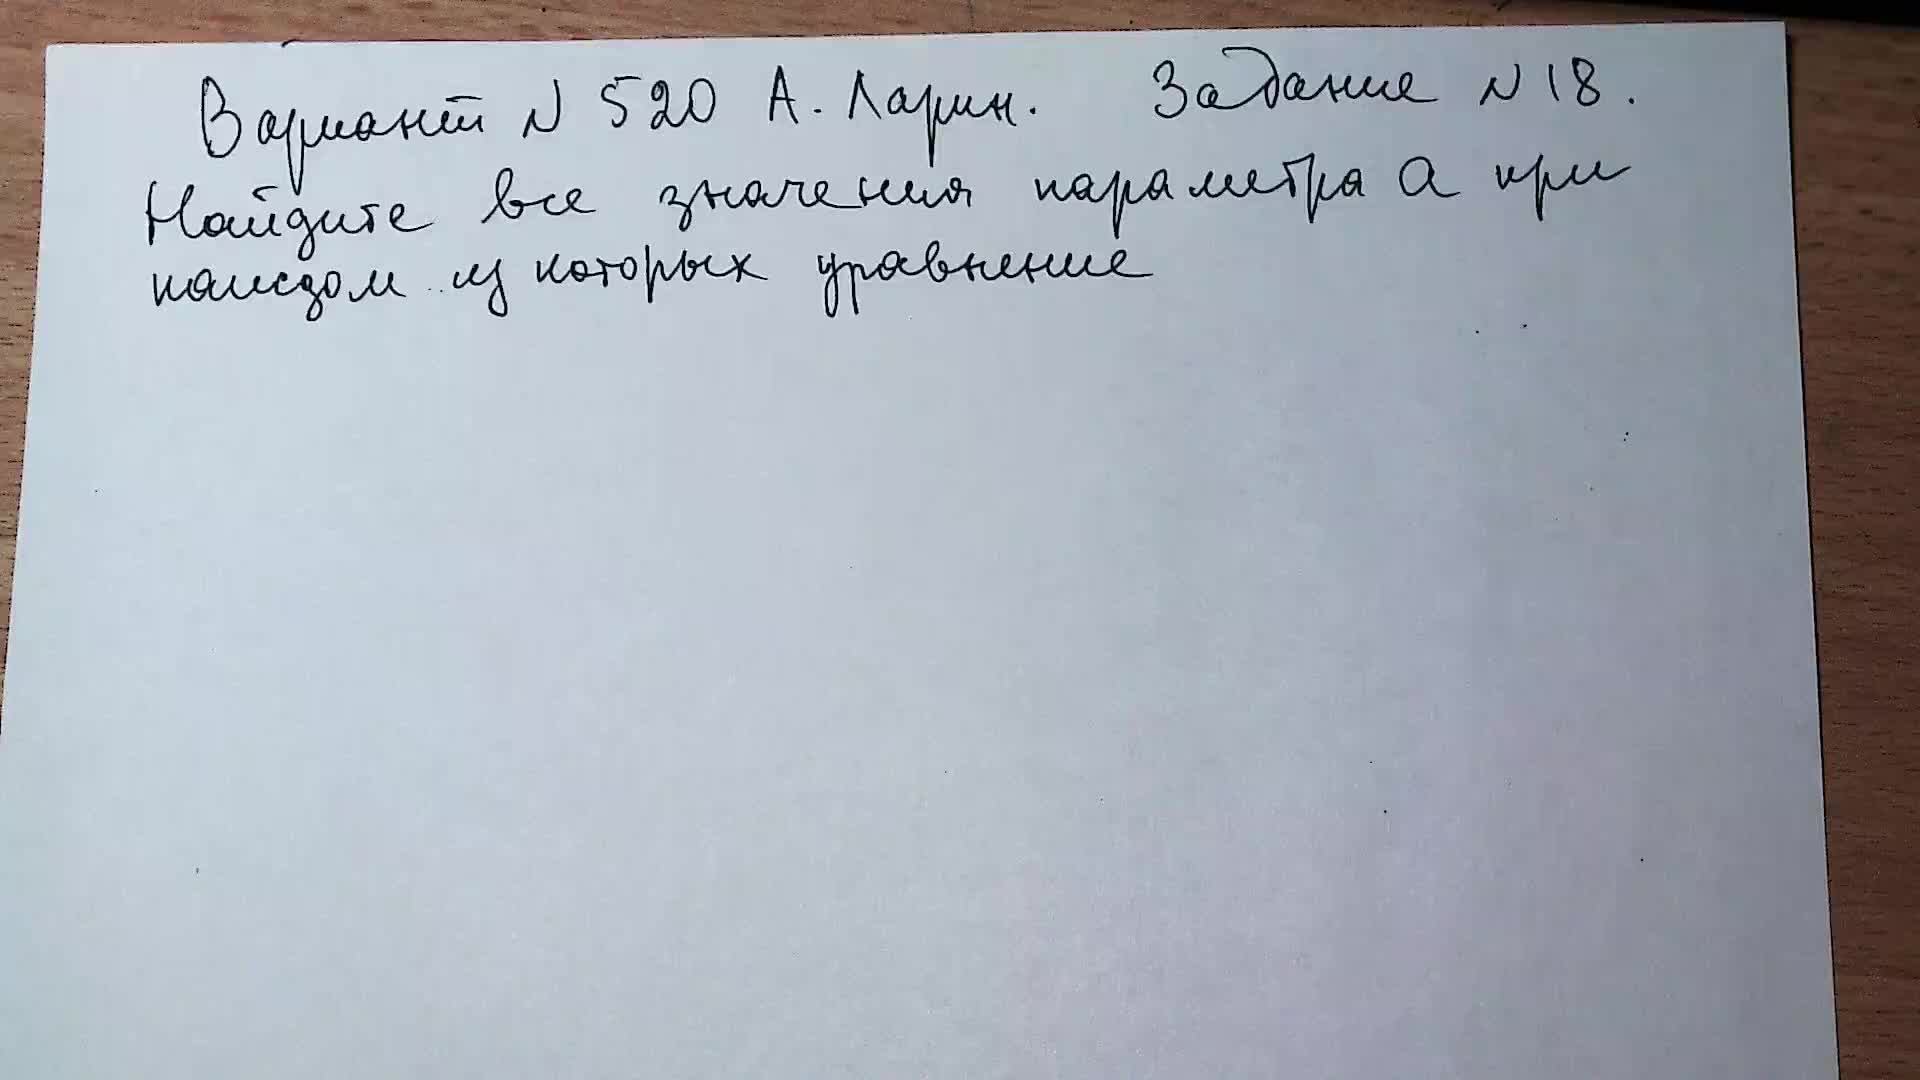 Вариант N 520 А. Ларин. Задание N 18.
Найдите все значения параметра а при
каждом из которых уравнение